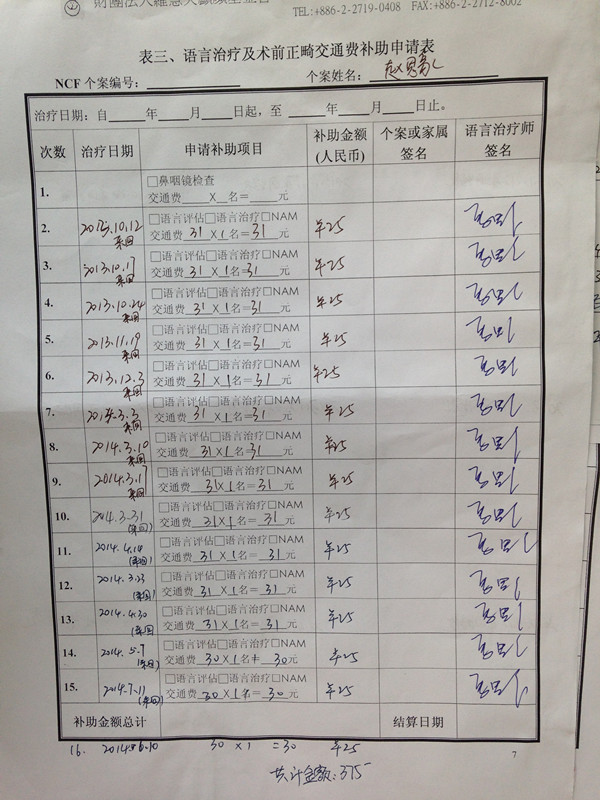 財團法人羅慧夫顱顏基金會
TEL:+886-2-2719-0408 FAX:+886-2-2712-8002
表三、语言治疗及术前正畸交通费补助申请表
NCF 个案编号: 个案姓名:
治疗日期:自 年 月 日起,至 年 月 日止。
次数 治疗日期 申请补助项目 补助金额(人民币) 个案或家属签名 语言治疗师签名
1. □鼻咽镜检查
交通费 X 名= 元
2. 2013.10.12 来回 □语言评估□语言治疗□NAM 25
交通费 31 X 1 名= 31 元
3. 2013.10.17 来回 □语言评估□语言治疗□NAM 25
交通费 31 X 1 名= 31 元
4. 2013.10.24 来回 □语言评估□语言治疗□NAM 25
交通费 31 X 1 名= 31 元
5. 2013.11.19 来回 □语言评估□语言治疗□NAM 25
交通费 31 X 1 名= 31 元
6. 2013.12.3 来回 □语言评估□语言治疗□NAM 25
交通费 31 X 1 名= 31 元
7. 2014.3.3 来回 □语言评估□语言治疗□NAM 25
交通费 31 X 1 名= 31 元
8. 2014.3.10 来回 □语言评估□语言治疗□NAM 25
交通费 31 X 1 名= 31 元
9. 2014.3.17 来回 □语言评估□语言治疗□NAM 25
交通费 31 X 1 名= 31 元
10. 2014.3.31 (来回) □语言评估□语言治疗□NAM 25
交通费 31 X 1 名= 31 元
11. 2014.4.14 (来回) □语言评估□语言治疗□NAM 25
交通费 31 X 1 名= 31 元
12. 2014.3.23 (来回) □语言评估□语言治疗□NAM 25
交通费 31 X 1 名= 31 元
13. 2014.4.30 (来回) □语言评估□语言治疗□NAM 25
交通费 31 X 1 名= 31 元
14. 2014.5.7 (来回) □语言评估□语言治疗□NAM 25
交通费 30 X 1 名= 30 元
15. 2014.7.11 (来回) □语言评估□语言治疗□NAM 25
交通费 30 X 1 名= 30 元
补助金额总计 结算日期
16. 2014.6.10 30 X 1 =30 25
7
共计金额:375